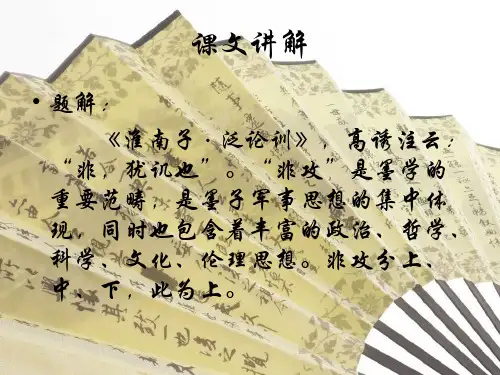 课文讲解
• 题解：
《淮南子·泛论训》，高诱注云：
“非，犹讥也”。“非攻”是墨学的
重要范畴，是墨子军事思想的集中体
现，同时也包含着丰富的政治、哲学、
科学、文化、伦理思想。非攻分上、
中、下，此为上。